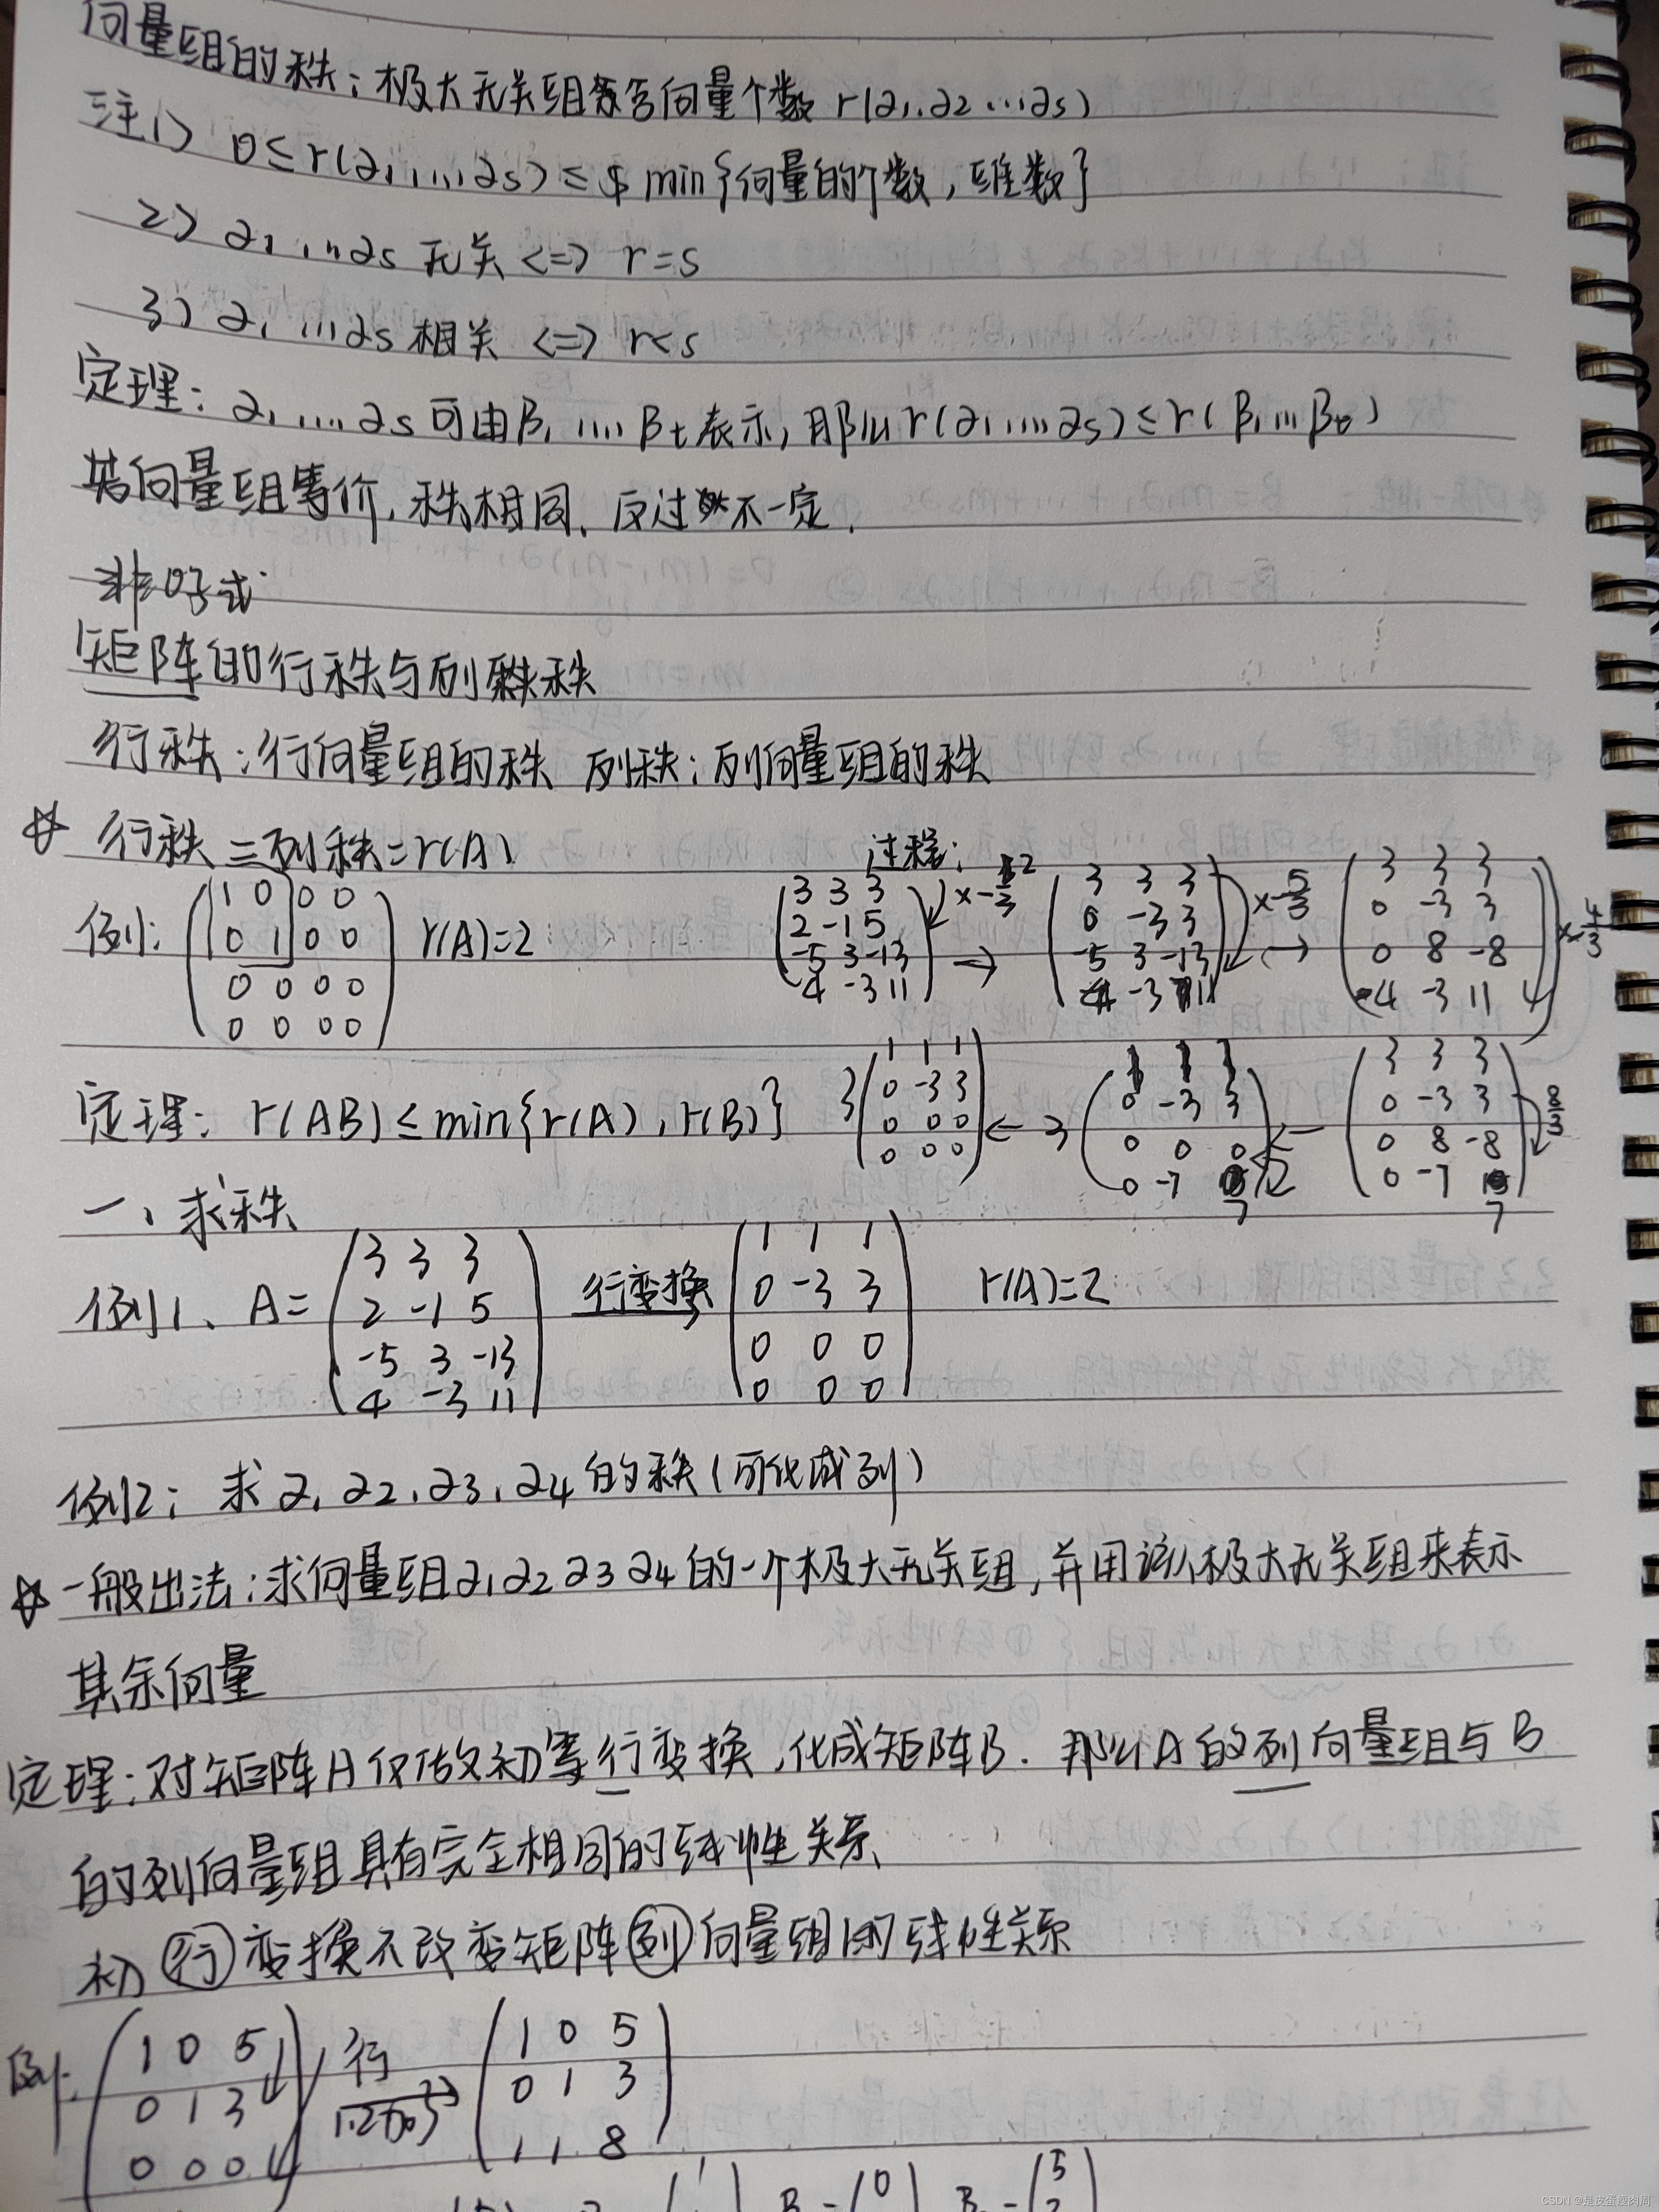 向量组的秩:极大无关组含向量个数 r(α1.α2…,αs)
注1) 0≤r(α1,…,αs)≤ min{向量的个数,维数}
2) α1,…αs 无关 <=> r=s
3) α1…αs 相关 <=> r<s
定理:α1,…αs可由β1,…βt表示,那么r(α1,…αs)≤r(β1…βt)
若向量组等价,秩相同,反过来不一定.
矩阵的行秩与列秩
行秩:行向量组的秩 列秩:列向量组的秩
☆ 行秩=列秩=r(A)
例:
1 0 0 0
0 1 0 0
0 0 0 0
0 0 0 0
r(A)=2
过程:
3 3 3
2 -1 5
-5 3 -13
4 -3 11
→
3 3 3
0 -3 3
-5 3 -13
4 -3 11
×-5/3
→
3 3 3
0 -3 3
0 8 -8
4 -3 11
×-4/3
3 3 3
0 -3 3
0 8 -8
0 -7 7
8/3
←
1 1 1
0 -3 3
0 0 0
0 -7 7
3
←
1 1 1
0 -3 3
0 0 0
0 0 0
3
定理:r(AB)≤min{r(A),r(B)}
一、求秩
例1、A=
3 3 3
2 -1 5
-5 3 -13
4 -3 11
行变换
1 1 1
0 -3 3
0 0 0
0 0 0
r(A)=2
例2:求α1α2,α3,α4的秩(可化成列)
☆一般出法:求向量组α1α2α3α4的一个极大无关组,并用该极大无关组来表示
其余向量
定理:对矩阵A仅做初等行变换,化成矩阵B.那么A的列向量组与B
的列向量组具有完全相同的线性关系
初行变换不改变矩阵列向量组的线性关系
例:
1 0 5
0 1 3
0 0 0
行
1.2加到3
1 0 5
0 1 3
1 1 8